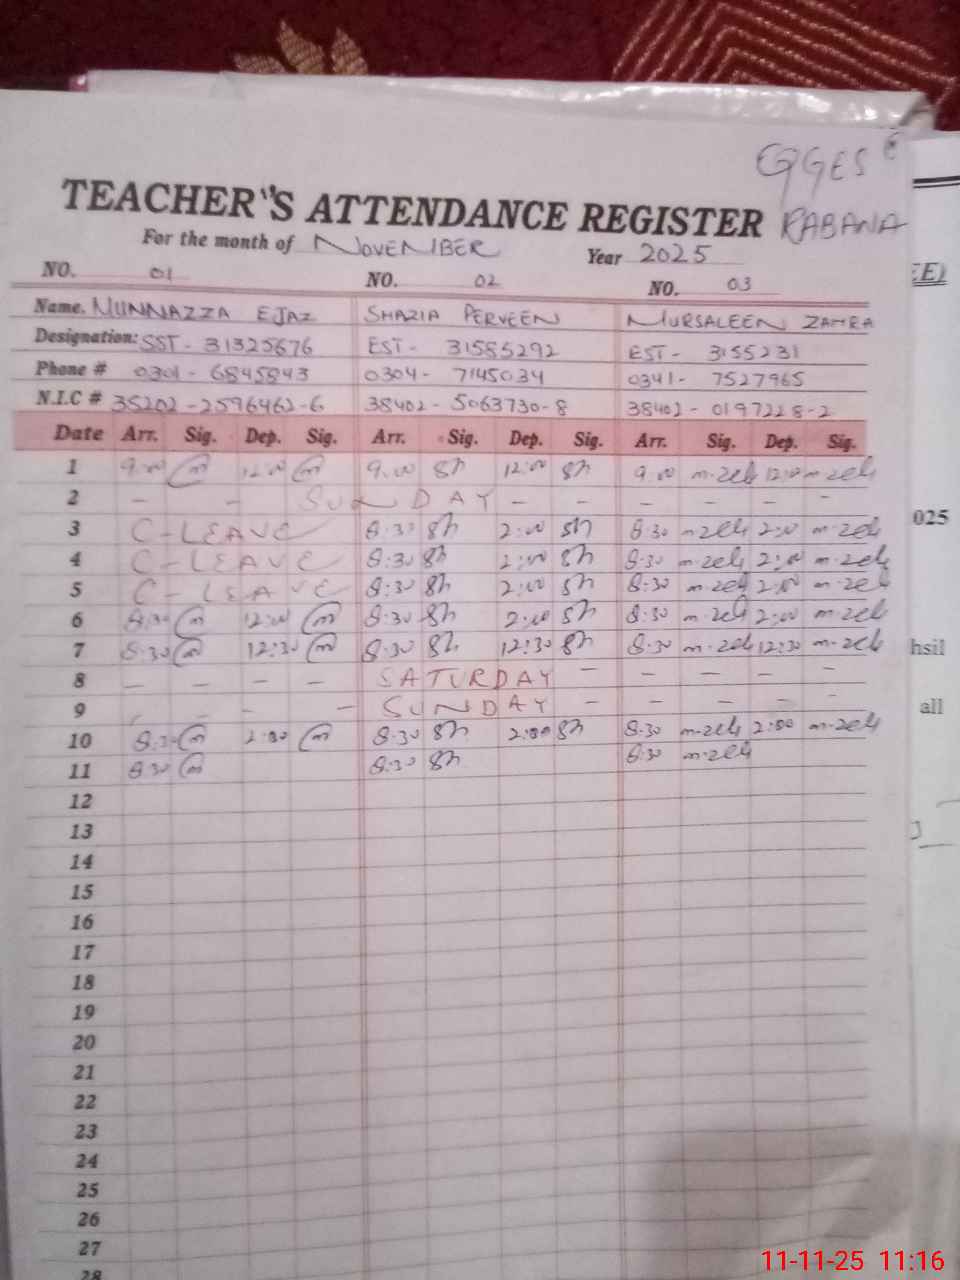 GGES
TEACHER'S ATTENDANCE REGISTER RABANA
For the month of NOVEMBER Year 2025
NO. 01 NO. 02 NO. 03
Name. MUNNAZZA EJAZ SHAZIA PERVEEN MURSALEEN ZAHRA
Designation: SST - 31325676 EST - 31585292 EST - 3155231
Phone # 0301 - 6845843 0304 - 7145034 0341 - 7527965
N.I.C # 35202-2596462-6 38402-5063730-8 38402-0197228-2
Date Arr. Sig. Dep. Sig. Arr. Sig. Dep. Sig. Arr. Sig. Dep. Sig.
1 9:00 m 12:00 m 9:00 Sh 12:00 Sh 9:00 m-zeh 12:00 m-zeh
2 - - SUNDAY - - - - - -
3 C-LEAVE 8:30 Sh 2:00 Sh 8:30 m-zeh 2:00 m-zeh
4 C-LEAVE 8:30 Sh 2:00 Sh 8:30 m-zeh 2:00 m-zeh
5 C-LEAVE 8:30 Sh 2:00 Sh 8:30 m-zeh 2:00 m-zeh
6 8:30 m 12:00 m 8:30 Sh 2:00 Sh 8:30 m-zeh 2:00 m-zeh
7 8:30 m 12:30 m 8:30 Sh 12:30 Sh 8:30 m-zeh 12:30 m-zeh
8 - - - - SATURDAY - - - - -
9 - - - - SUNDAY - - - - -
10 8:30 m 2:00 m 8:30 Sh 2:00 Sh 8:30 m-zeh 2:00 m-zeh
11 8:30 m 8:30 Sh 8:30 m-zeh
12
13
14
15
16
17
18
19
20
21
22
23
24
25
26
27
28
EE)
025
hsil
all
11-11-25 11:16